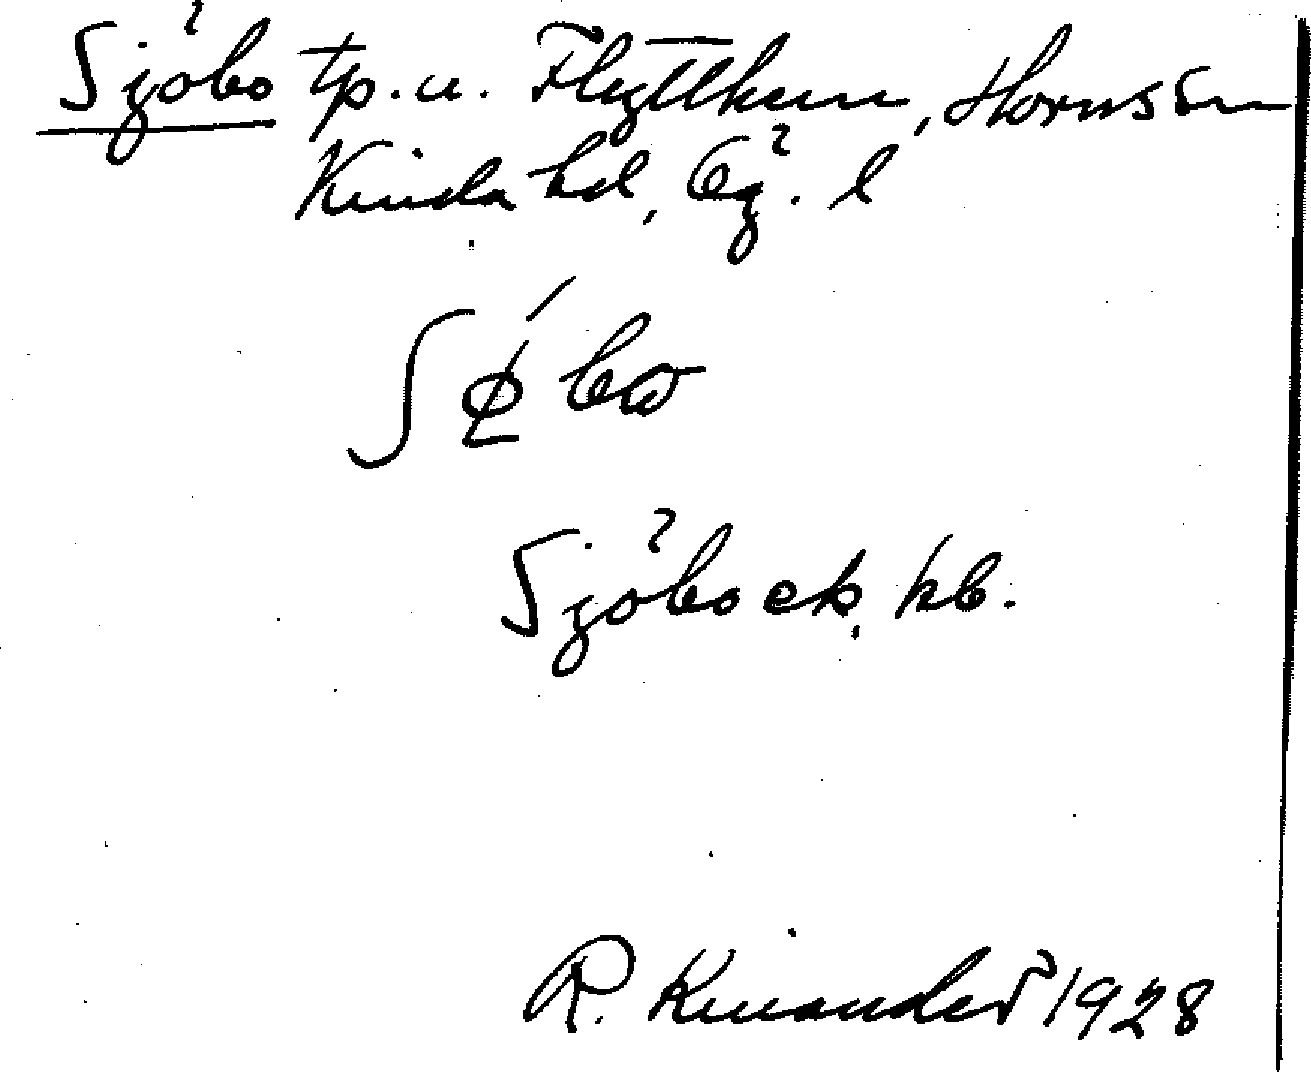 Sjöbo tp. u. Flytthem, Horns sn
Kinda hd, Ög. l
Sjöbo ek, kb.
R. Kinander 1928